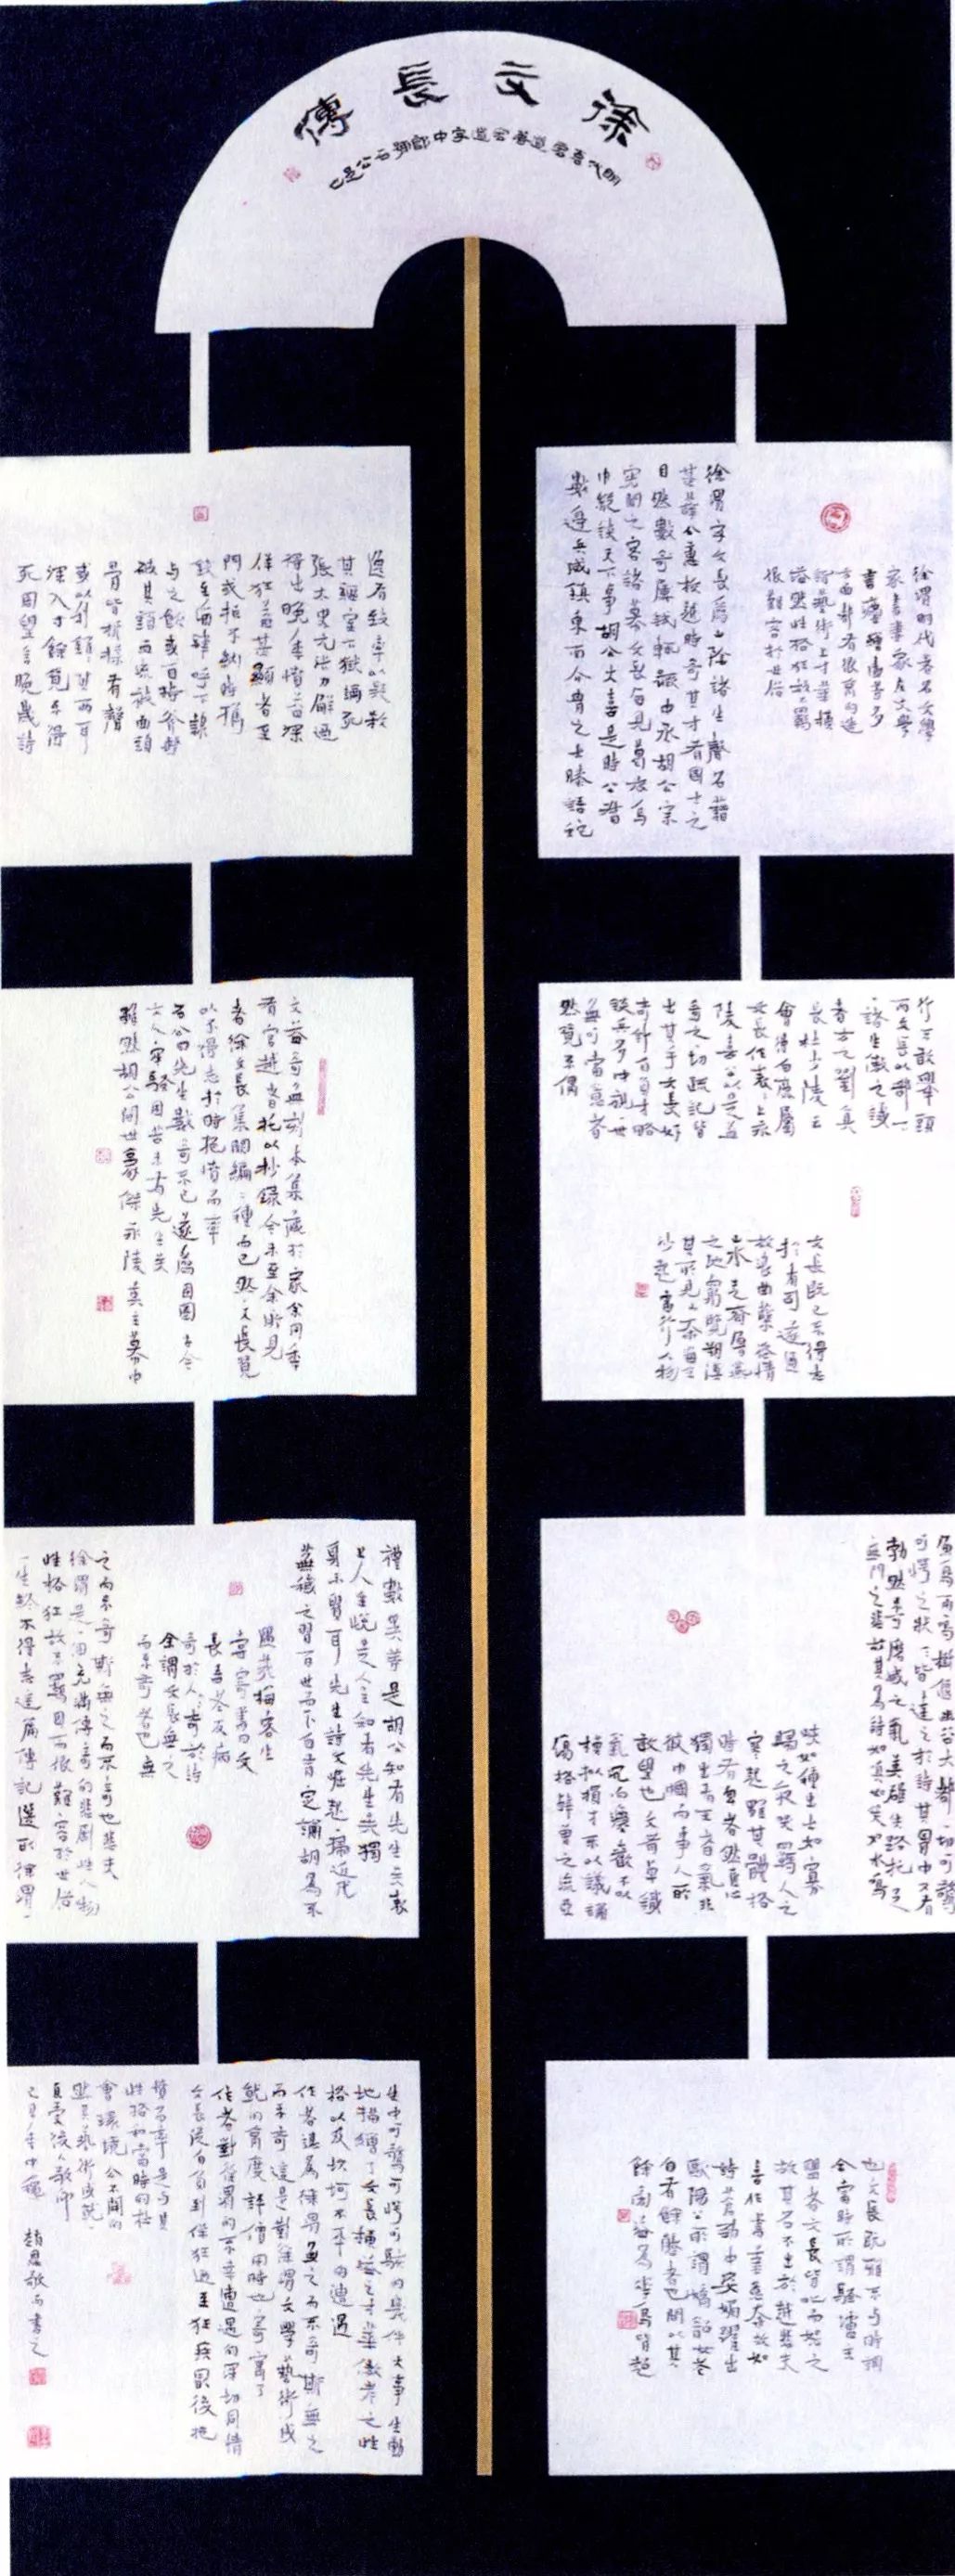 徐文長傳
明代袁宏道著宏道字中郎號石公是也
徐渭明代著名文學
家書畫家在文學
書畫戲曲等多
方面都有很高的造
詣藝術上才華橫
溢然性格狂放不羈
很難容於世俗
徐渭字文長為山陰諸生聲名藉
甚薛公蕙校越時奇其才有國士之
目然數奇屢試輒蹶中丞胡公宗
憲聞之客諸幕文長每見葛衣烏
巾縱談天下事胡公大喜是時公督
數邊兵威鎮東南介胄之士膝語蛇
行不敢舉頭
而文長以部下一
諸生傲之議
者方之劉真
長杜少陵云
會得白鹿屬
文長作表表上永
陵喜公以是益
奇之一切疏記皆
出其手文長好
奇計自負才略
談兵多中視一世
無可當意者
然竟不偶
文長既已不得志
於有司遂乃
放浪曲蘖恣情
山水走齊魯燕趙
之地窮覽朔漠
其所見山奔海立
沙起雷行人物
而高樹幽谷大都一切可驚
可愕之狀一一皆達之於詩其胸中又有
勃然不磨滅之氣英雄失路托足
無門之悲故其為詩如嗔如笑如水鳴
峽如種出土如寡
婦之夜哭羈人之
寒起雖其體格
時有卑者然匠心
獨出有王者氣非
彼巾幗而事人所
敢望也文有卓識
氣沉而法嚴不以
模擬損才不以議論
傷格韓曾之流亞
也文長既雅不與時調
合當時所謂騷壇主
盟者文長皆叱而怒之
故其名不出於越悲夫
喜作書筆意奔放如
詩蒼勁中姿媚躍出
歐陽公所謂嬌韶女老
自有餘態者也間以其
餘旁溢為花鳥皆超
逸有致卒以疑殺
其繼室下獄論死
張太史元汴力解乃
得出晚年憤益深
佯狂益甚顯者至
門或拒不納時攜
錢至酒肆呼下隸
與之飲或自持斧擊
破其頭血流被面頭
骨皆折揉有聲
或以利錐錐其兩耳
深入寸餘竟不得
死周望言晚歲詩
文益奇無刻本集藏於家余同年
有官越者托以抄錄今未至余所見
者徐文長集闕編二種而已然文長竟
以不得志於時抱憤而卒
石公曰先生數奇不已遂為囹圄古今
文人牢騷困苦未有先生矣
雖然胡公間世豪傑永陵英主幕中
禮數異等是胡公知有先生矣表
上人主悅是人主知有先生矣獨
身未貴耳先生詩文崛起一掃近代
蕪穢之習百世而下自有定論胡為不
遇哉梅客生
嘗寄書文
長吾老友病
奇於人人奇於詩
余謂文長無之
而不奇者也無
之而不奇斯無之而不奇也悲夫
徐渭是一個充滿傳奇的悲劇性人物
性格狂放不羈因而很難容於世俗
一生終不得志這篇傳記選取徐渭一
生中可驚可愕可駭的幾件大事生動
地描繪了文長橫溢之才華傲岸之性
格以及坎坷不平的遭遇
作者認為徐渭無之而不奇斯無之
而不奇這是對徐渭文學藝術成
就的高度評價同時也寄寓了
作者對徐渭的不幸遭遇的深切同情
文長從自負到佯狂乃至狂疾最後抱
憤而卒是與其
性格和當時的社
會環境分不開的
然其藝術成就
直受後人敬仰
己丑年中秋 趙恩敬而書之